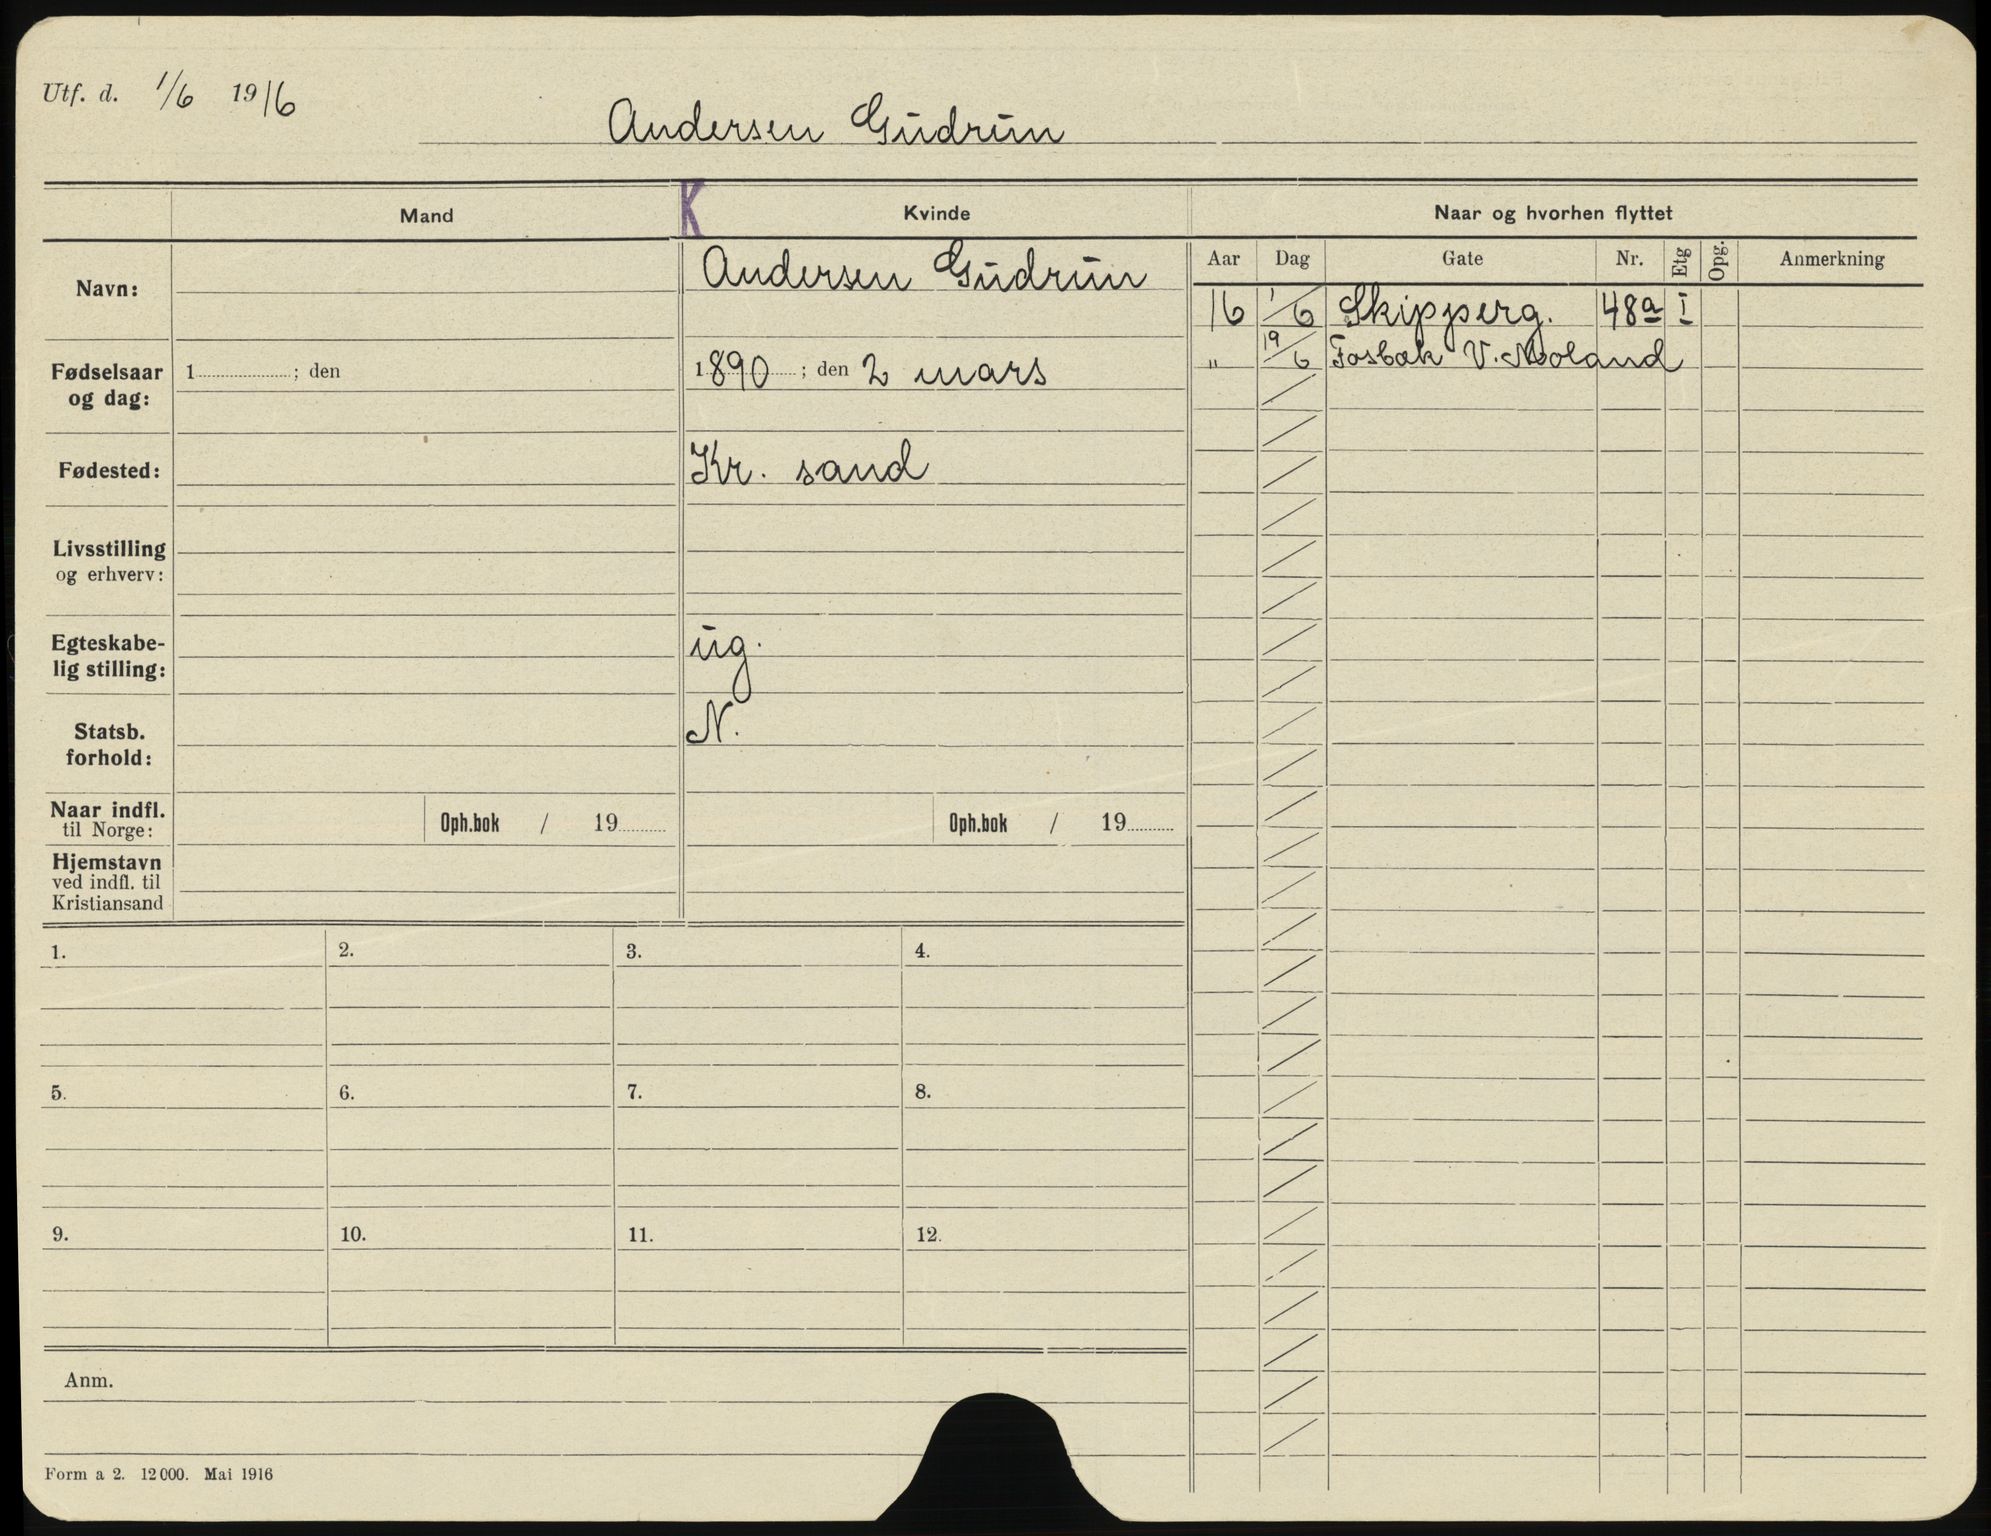 Utf. d. 1/6 1916
Andersen Gudrun
Mand
K
Kvinde
Naar og hvorhen flyttet
Aar Dag Gate Nr. Etg Opg. Anmerkning
Navn:
Andersen Gudrun
16 1/6 Skipperg. 48a I
" 19/6 Fosbæk V. Moland
Fødselsaar
og dag:
1 ; den
1890 ; den 2 mars
Fødested:
Kr. sand
Livsstilling
og erhverv:
Egteskabe-
lig stilling:
ug.
Statsb.
forhold:
N.
Naar indfl.
til Norge:
Oph.bok / 19
Oph.bok / 19
Hjemstavn
ved indfl. til
Kristiansand
1. 2. 3. 4.
5. 6. 7. 8.
9. 10. 11. 12.
Anm.
Form a 2. 12000. Mai 1916